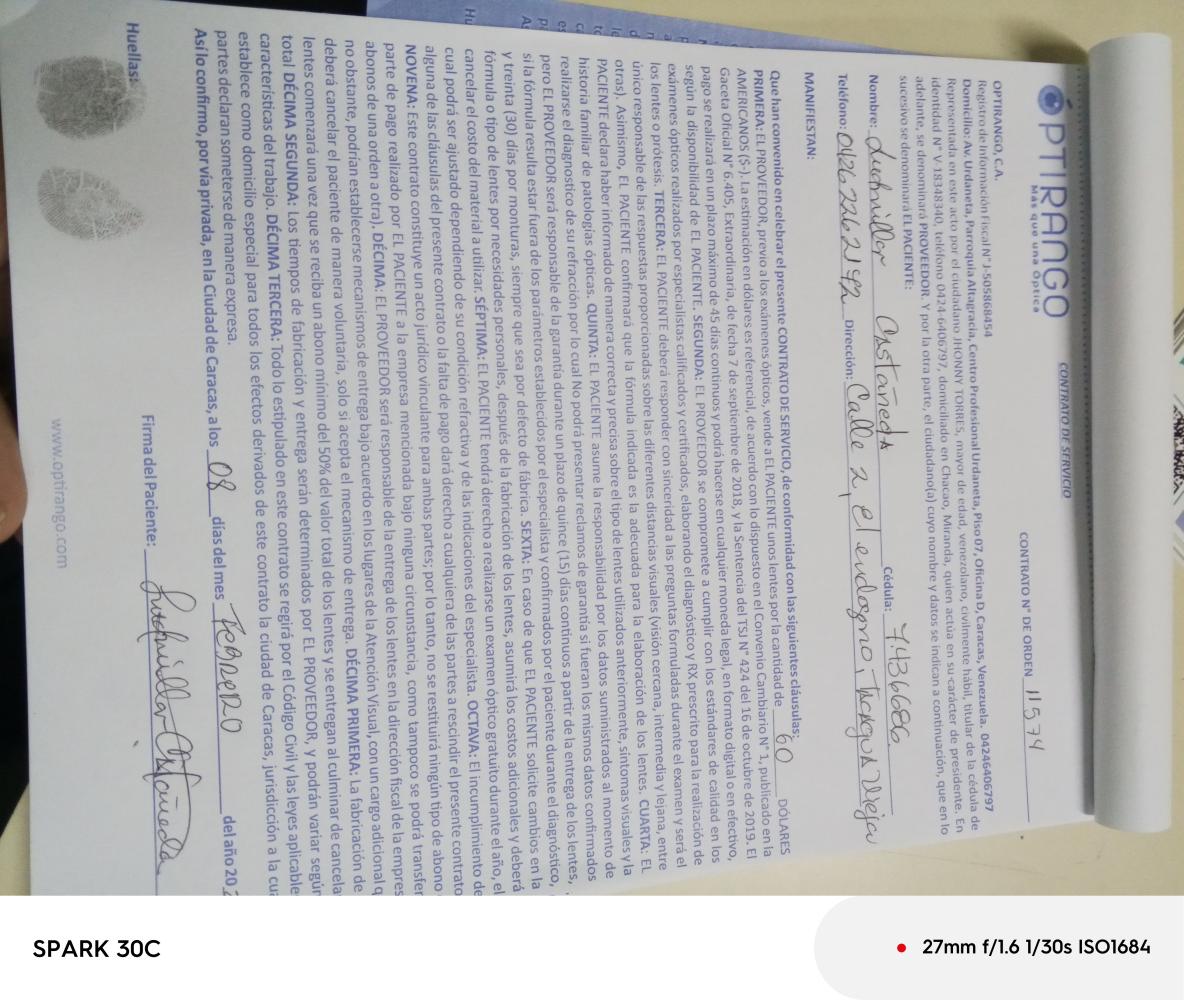 OPTIRANGO
Más que una Óptica
CONTRATO DE SERVICIO
CONTRATO N° DE ORDEN 11574
OPTIRANGO, C.A.
Registro de Información Fiscal N° J-505868454
Domicilio: Av. Urdaneta, Parroquia Altagracia, Centro Profesional Urdaneta, Piso 07, Oficina D, Caracas, Venezuela. 04246406797
Representada en este acto por el ciudadano JHONNY TORRES, mayor de edad, venezolano, civilmente hábil, titular de la cédula de
identidad N° V-18348340, teléfono 0424-6406797, domiciliado en Chacao, Miranda, quien actúa en su carácter de presidente. En
adelante, se denominará PROVEEDOR. Y por la otra parte, el ciudadano(a) cuyo nombre y datos se indican a continuación, que en lo
sucesivo se denominará EL PACIENTE:
Nombre: Ludmillar Castañeda Cédula: 7.436686
Teléfono: 04262262192 Dirección: Calle 2, el
MANIFIESTAN:
Que han convenido en celebrar el presente CONTRATO DE SERVICIO, de conformidad con las siguientes cláusulas:
PRIMERA: EL PROVEEDOR, previo a los exámenes ópticos, vende a EL PACIENTE unos lentes por la cantidad de 60 DÓLARES
AMERICANOS ($-). La estimación en dólares es referencial, de acuerdo con lo dispuesto en el Convenio Cambiario N° 1, publicado en la
Gaceta Oficial N° 6.405, Extraordinaria, de fecha 7 de septiembre de 2018, y la Sentencia del TSJ N° 424 del 16 de octubre de 2019. El
pago se realizará en un plazo máximo de 45 días continuos y podrá hacerse en cualquier moneda legal, en formato digital o en efectivo,
según la disponibilidad de EL PACIENTE. SEGUNDA: EL PROVEEDOR se compromete a cumplir con los estándares de calidad en los
exámenes ópticos realizados por especialistas calificados y certificados, elaborando el diagnóstico y RX prescrito para la realización de
los lentes o prótesis. TERCERA: EL PACIENTE deberá responder con sinceridad a las preguntas formuladas durante el examen y será el
único responsable de las respuestas proporcionadas sobre las diferentes distancias visuales (visión cercana, intermedia y lejana, entre
otras). Asimismo, EL PACIENTE confirmará que la fórmula indicada es la adecuada para la elaboración de los lentes. CUARTA: EL
PACIENTE declara haber informado de manera correcta y precisa sobre el tipo de lentes utilizados anteriormente, síntomas visuales y la
historia familiar de patologías ópticas. QUINTA: EL PACIENTE asume la responsabilidad por los datos suministrados al momento de
realizarse el diagnostico de su refracción por lo cual No podrá presentar reclamos de garantía si fueran los mismos datos confirmados
pero EL PROVEEDOR será responsable de la garantía durante un plazo de quince (15) días continuos a partir de la entrega de los lentes,
si la fórmula resulta estar fuera de los parámetros establecidos por el especialista y confirmados por el paciente durante el diagnóstico,
y treinta (30) días por monturas, siempre que sea por defecto de fábrica. SEXTA: En caso de que EL PACIENTE solicite cambios en la
fórmula o tipo de lentes por necesidades personales, después de la fabricación de los lentes, asumirá los costos adicionales y deberá
cancelar el costo del material a utilizar. SÉPTIMA: EL PACIENTE tendrá derecho a realizarse un examen óptico gratuito durante el año, el
cual podrá ser ajustado dependiendo de su condición refractiva y de las indicaciones del especialista. OCTAVA: El incumplimiento de
alguna de las cláusulas del presente contrato o la falta de pago dará derecho a cualquiera de las partes a rescindir el presente contrato
NOVENA: Este contrato constituye un acto jurídico vinculante para ambas partes; por lo tanto, no se restituirá ningún tipo de abono
parte de pago realizado por EL PACIENTE a la empresa mencionada bajo ninguna circunstancia, como tampoco se podrá transfer
abonos de una orden a otra). DÉCIMA: EL PROVEEDOR será responsable de la entrega de los lentes en la dirección fiscal de la empres
no obstante, podrían establecerse mecanismos de entrega bajo acuerdo en los lugares de la Atención Visual, con un cargo adicional q
deberá cancelar el paciente de manera voluntaria, solo si acepta el mecanismo de entrega. DÉCIMA PRIMERA: La fabricación de
lentes comenzará una vez que se reciba un abono mínimo del 50% del valor total de los lentes y se entregan al culminar de cancela
total DÉCIMA SEGUNDA: Los tiempos de fabricación y entrega serán determinados por EL PROVEEDOR, y podrán variar según
características del trabajo. DÉCIMA TERCERA: Todo lo estipulado en este contrato se regirá por el Código Civil y las leyes aplicable
establece como domicilio especial para todos los efectos derivados de este contrato la ciudad de Caracas, jurisdicción a la cua
partes declaran someterse de manera expresa.
Así lo confirmo, por vía privada, en la Ciudad de Caracas, a los 08 días del mes Febrero del año 20
Huellas:
Firma del Paciente: Ludmillar Castañeda
www.optirango.com
SPARK 30C
27mm f/1.6 1/30s ISO1684